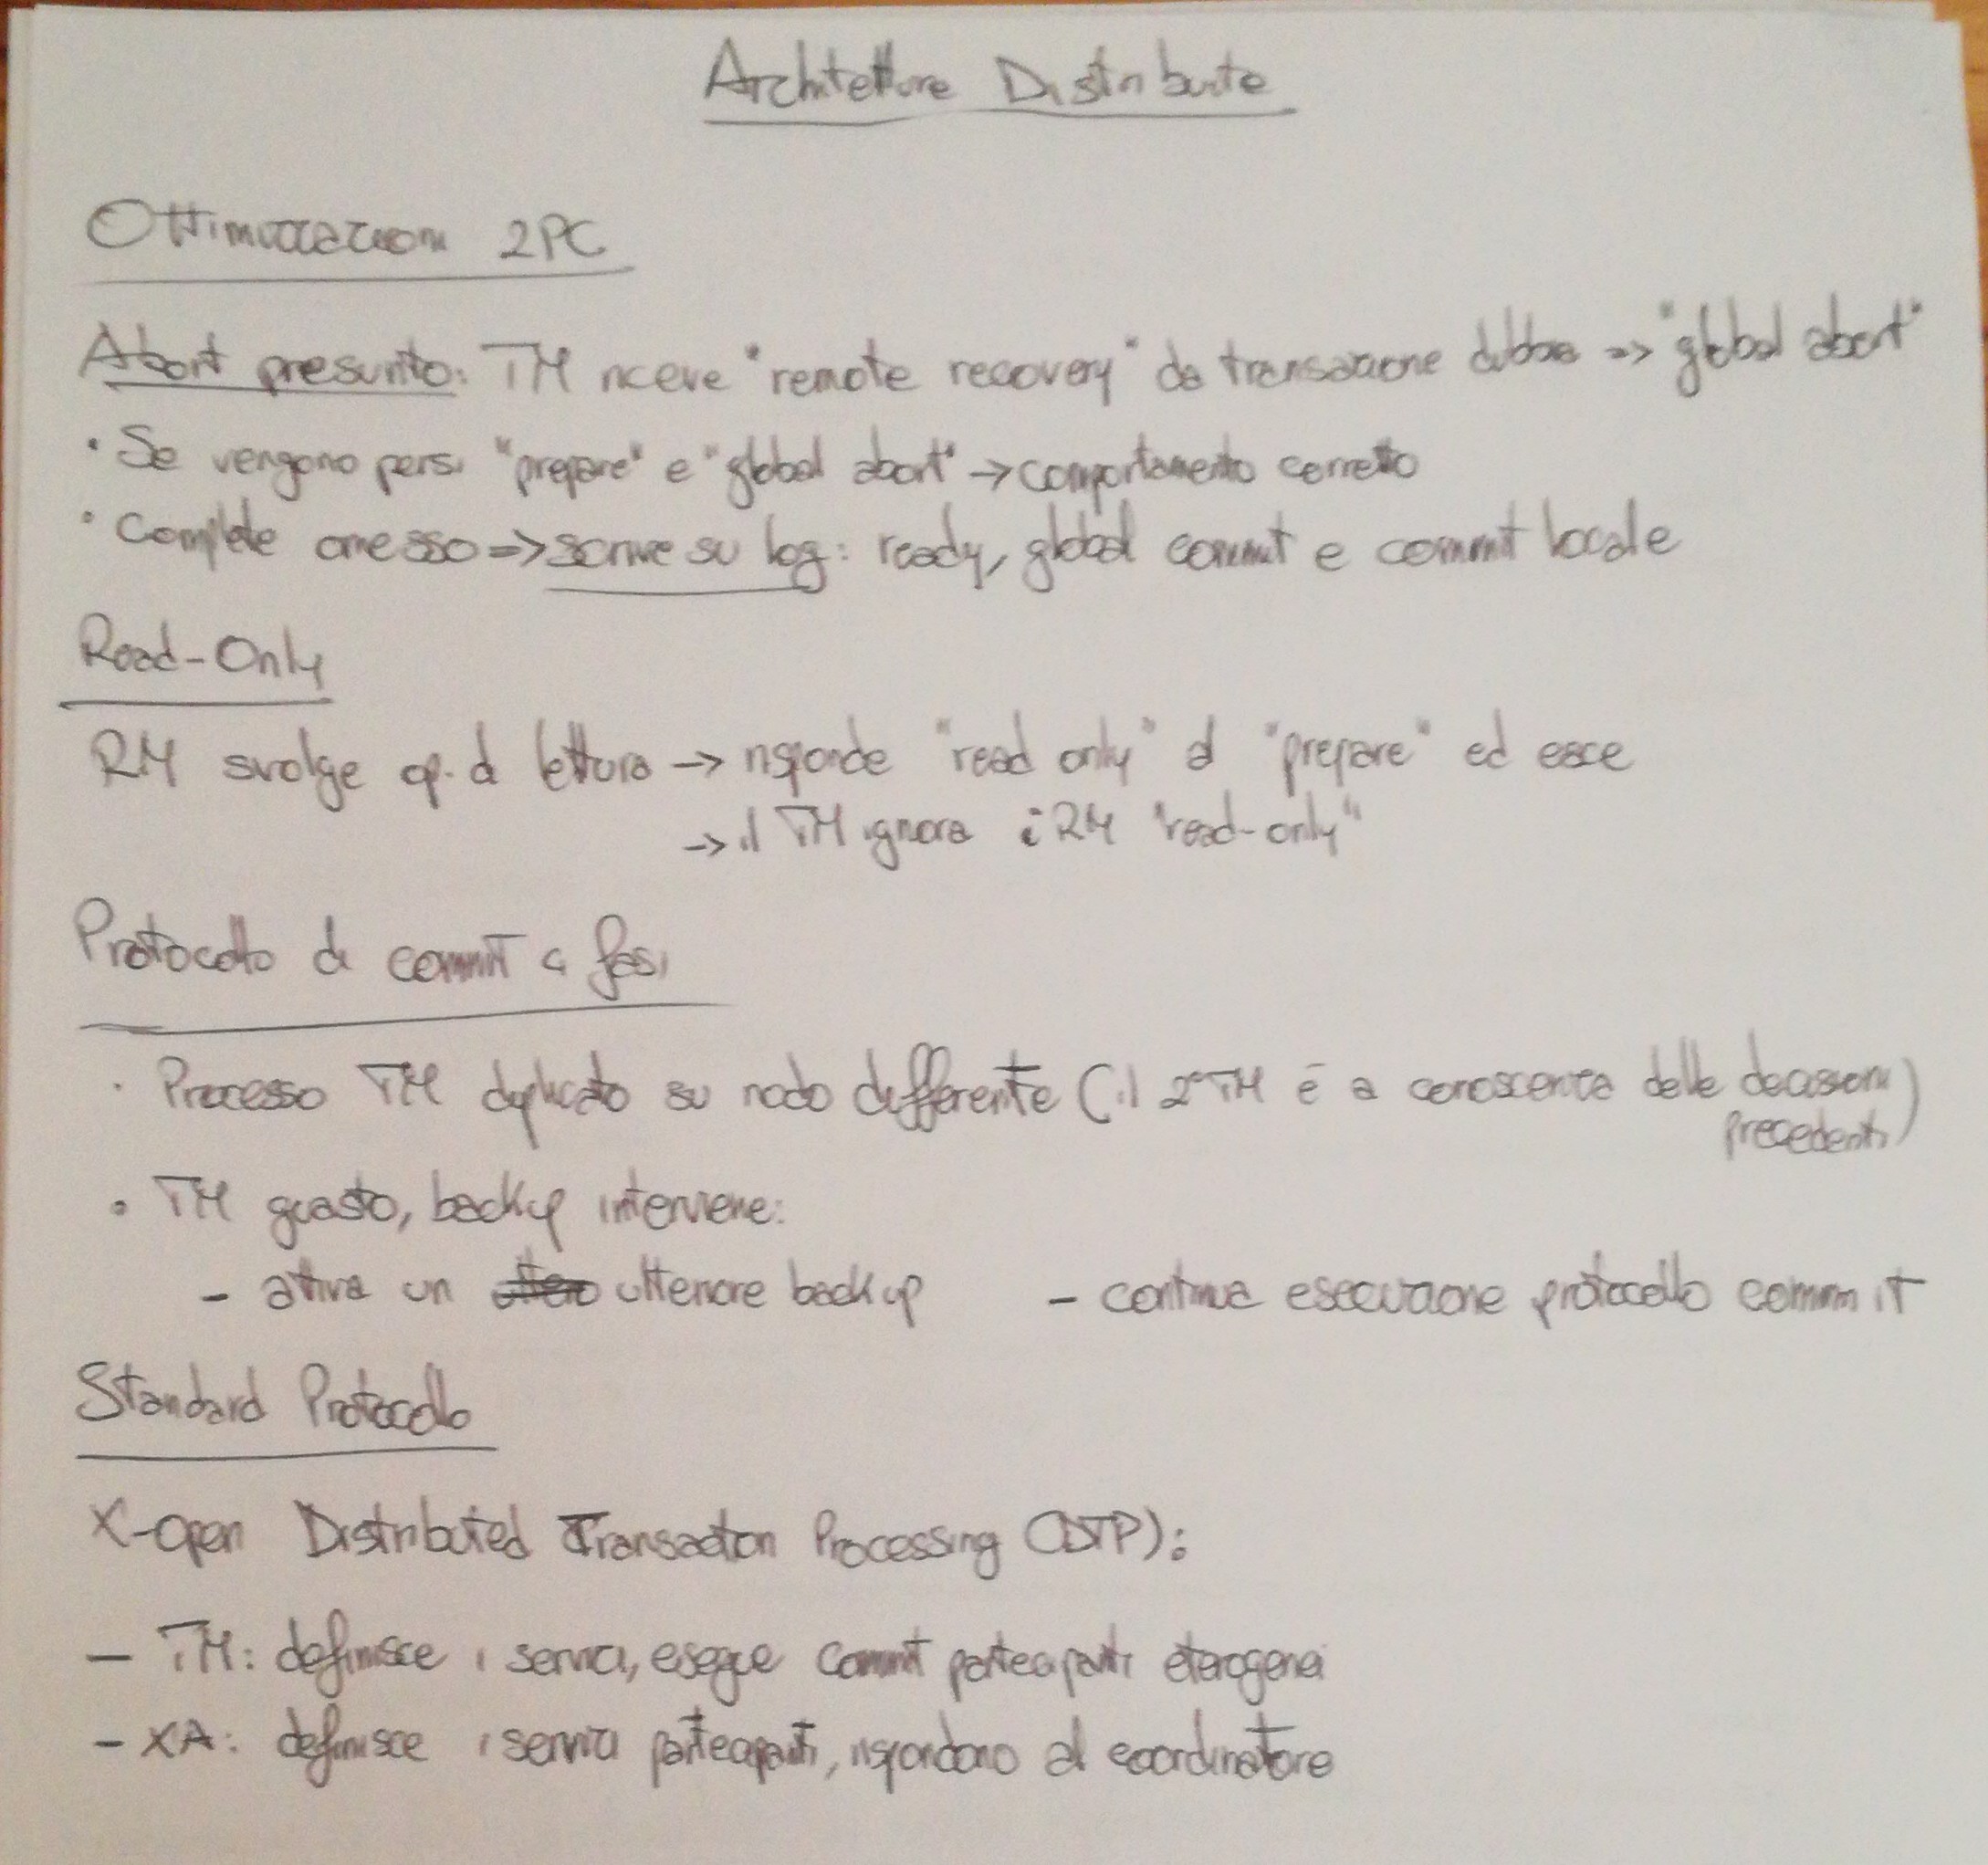 Architetture Distribuite
Ottimizzazioni 2PC
Abort presunto: TM riceve "remote recovery" da transazione dubbia => "global abort"
• Se vengono persi "prepare" e "global abort" → comportamento corretto
• Complete omesso => scrive su log: ready, global commit e commit locale
Read-Only
RM svolge op. di lettura → risponde "read only" al "prepare" ed esce
→ il TM ignora i RM "read-only"
Protocollo di commit 4 fasi
· Processo TM duplicato su nodo differente (il 2° TM è a conoscenza delle decisioni
precedenti)
• TM guasto, backup interviene:
- attiva un ulteriore backup - continua esecuzione protocollo commit
Standard Protocollo
X-Open Distributed Transaction Processing (DTP):
- TM: definisce i servizi, esegue commit partecipanti eterogenei
- XA: definisce i servizi partecipanti, rispondono al coordinatore